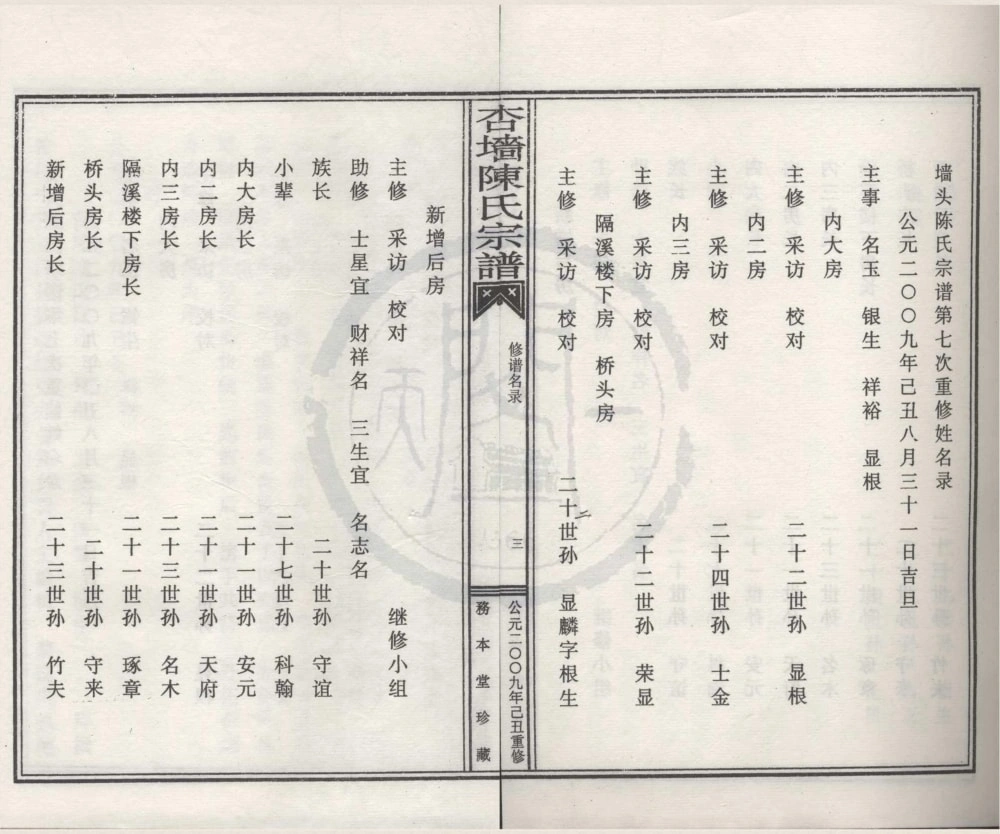 墙头陈氏宗谱第七次重修姓名录
公元二〇〇九年己丑八月三十一日吉旦
主事 名玉 银生 祥裕 显根
内大房
主修 采访 校对 二十二世孙 显根
内二房
主修 采访 校对 二十四世孙 士金
内三房
主修 采访 校对 二十二世孙 荣显
隔溪楼下房 桥头房
主修 采访 校对 二十世孙 显麟字根生
杏墻陳氏宗譜
修谱名录
三
公元二〇〇九年己丑重修
務本堂珍藏
新增后房
主修 采访 校对 继修小组
助修 士星宜 财祥名 三生宜 名志名
族长 二十世孙 守谊
小辈 二十七世孙 科翰
内大房长 二十一世孙 安元
内二房长 二十一世孙 天府
内三房长 二十三世孙 名木
隔溪楼下房长 二十一世孙 琢章
桥头房长 二十世孙 守来
新增后房长 二十三世孙 竹夫